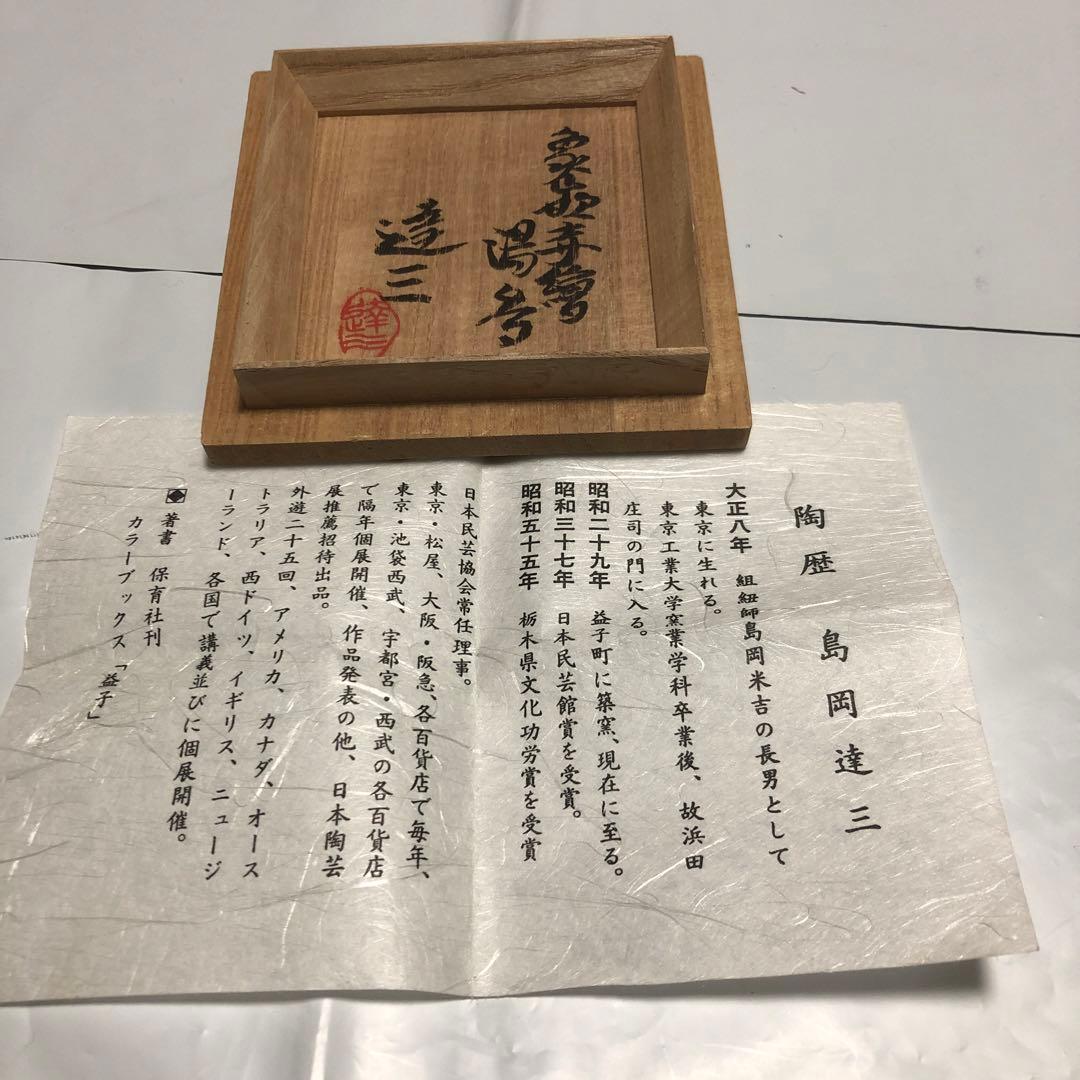 象嵌赤繪
湯呑
達三
達三
陶歴 島岡達三
大正八年 組紐師島岡米吉の長男として
東京に生れる。
東京工業大学窯業学科卒業後、故浜田
庄司の門に入る。
昭和二十九年 益子町に築窯、現在に至る。
昭和三十七年 日本民芸館賞を受賞。
昭和五十五年 栃木県文化功労賞を受賞
日本民芸協会常任理事。
東京・松屋、大阪・阪急、各百貨店で毎年、
東京・池袋西武、宇都宮・西武の各百貨店
で隔年個展開催、作品発表の他、日本陶芸
展推薦招待出品。
外遊二十五回、アメリカ、カナダ、オース
トラリア、西ドイツ、イギリス、ニュージ
ーランド、各国で講義並びに個展開催。
著書 保育社刊
カラーブックス「益子」